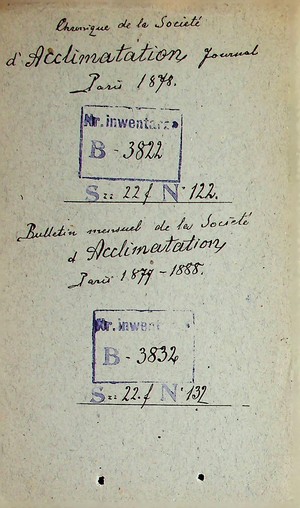 Chronique de la Societé
d'Acclimatation Journal
Paris 1878.
Nr. inwentarza
B - 3822
S 22 f N 122.
Bulletin mensuel de la Societé
d Acclimatation
Paris 1879 - 1888.
Nr. inwent
B - 3832
S 22. f N 132